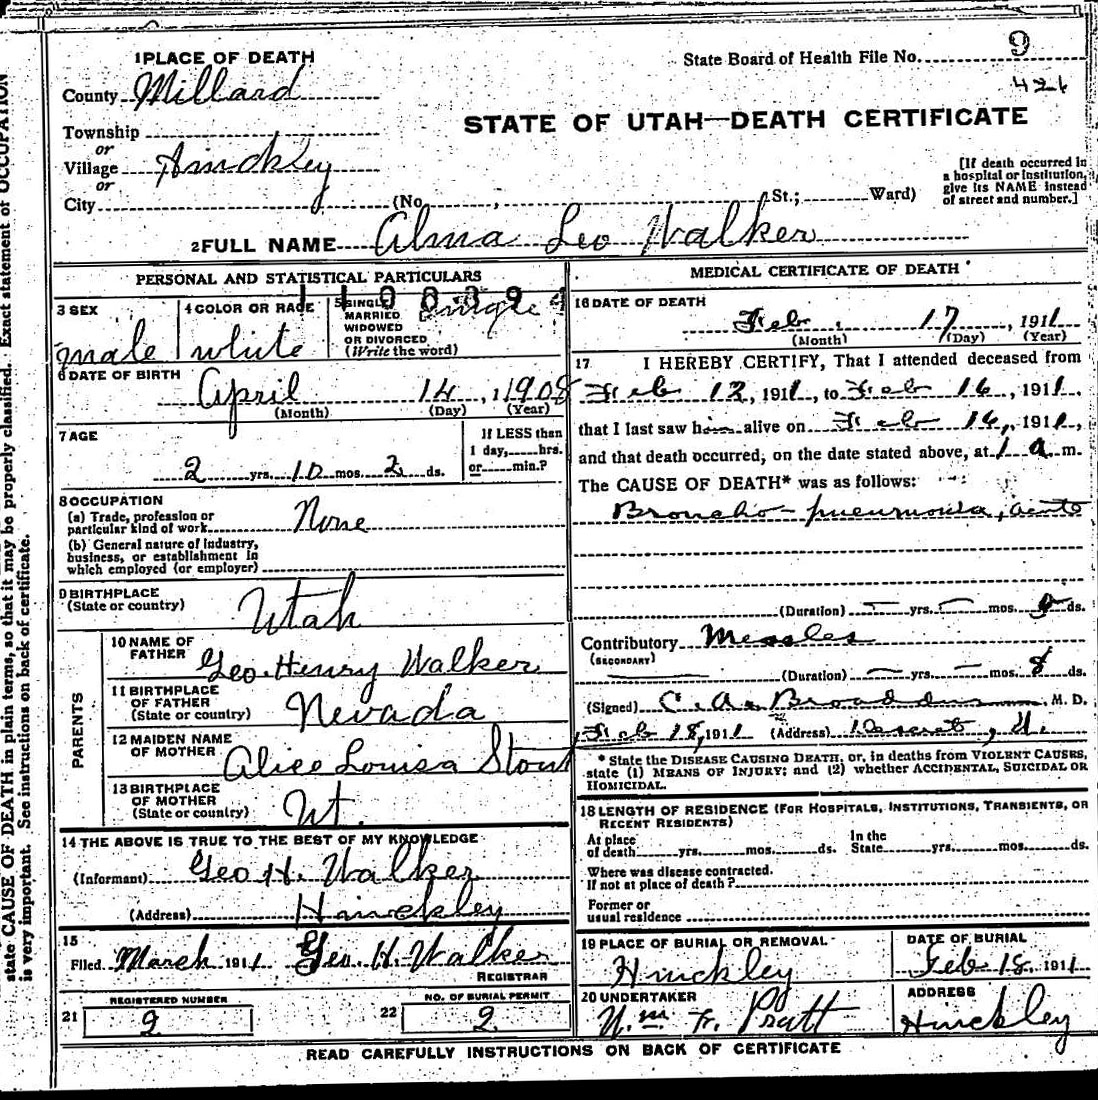 1 PLACE OF DEATH
State Board of Health File No. 9
County Millard
426
STATE OF UTAH—DEATH CERTIFICATE
Township
or
Village Hinckley
or
City (No. , St.; Ward)
[If death occurred in
a hospital or institution,
give its NAME instead
of street and number.]
2 FULL NAME Alma Leo Walker
PERSONAL AND STATISTICAL PARTICULARS
3 SEX
male
4 COLOR OR RACE
white
5 SINGLE
MARRIED
WIDOWED
OR DIVORCED
(Write the word)
Single
6 DATE OF BIRTH
April 14, 1908
(Month) (Day) (Year)
7 AGE
2 yrs. 10 mos. 2 ds.
If LESS than
1 day, hrs.
or min.?
8 OCCUPATION
(a) Trade, profession or
particular kind of work None
(b) General nature of industry,
business, or establishment in
which employed (or employer)
9 BIRTHPLACE
(State or country) Utah
PARENTS
10 NAME OF
FATHER Geo. Henry Walker
11 BIRTHPLACE
OF FATHER
(State or country) Nevada
12 MAIDEN NAME
OF MOTHER Alice Louisa Stout
13 BIRTHPLACE
OF MOTHER
(State or country) Ut.
14 THE ABOVE IS TRUE TO THE BEST OF MY KNOWLEDGE
(Informant) Geo H. Walker
(Address) Hinckley
15
Filed March 1911 Geo. H. Walker
REGISTRAR
REGISTERED NUMBER
21 2
NO. OF BURIAL PERMIT
22 2
MEDICAL CERTIFICATE OF DEATH
16 DATE OF DEATH
Feb. 17, 1911
(Month) (Day) (Year)
17 I HEREBY CERTIFY, That I attended deceased from
Feb 12, 1911, to Feb 16, 1911,
that I last saw him alive on Feb 16, 1911,
and that death occurred, on the date stated above, at 1 a m.
The CAUSE OF DEATH* was as follows:
Broncho-pneumonia, acute
(Duration) — yrs. — mos. ds.
Contributory Measles
(SECONDARY)
(Duration) — yrs. — mos. 8 ds.
(Signed) C. A. Broaddus M. D.
Feb 18, 1911 (Address) Deseret, U.
* State the DISEASE CAUSING DEATH, or, in deaths from VIOLENT CAUSES,
state (1) MEANS OF INJURY; and (2) whether ACCIDENTAL, SUICIDAL OR
HOMICIDAL.
18 LENGTH OF RESIDENCE (FOR HOSPITALS, INSTITUTIONS, TRANSIENTS, OR
RECENT RESIDENTS)
At place
of death yrs. mos. ds.
In the
State yrs. mos. ds.
Where was disease contracted.
If not at place of death?
Former or
usual residence
19 PLACE OF BURIAL OR REMOVAL
Hinckley
DATE OF BURIAL
Feb 18, 1911
20 UNDERTAKER
Wm. Fr. Pratt
ADDRESS
Hinckley
READ CAREFULLY INSTRUCTIONS ON BACK OF CERTIFICATE
state CAUSE OF DEATH in plain terms, so that it may be properly classified. Exact statement of OCCUPATION
is very important. See instructions on back of certificate.